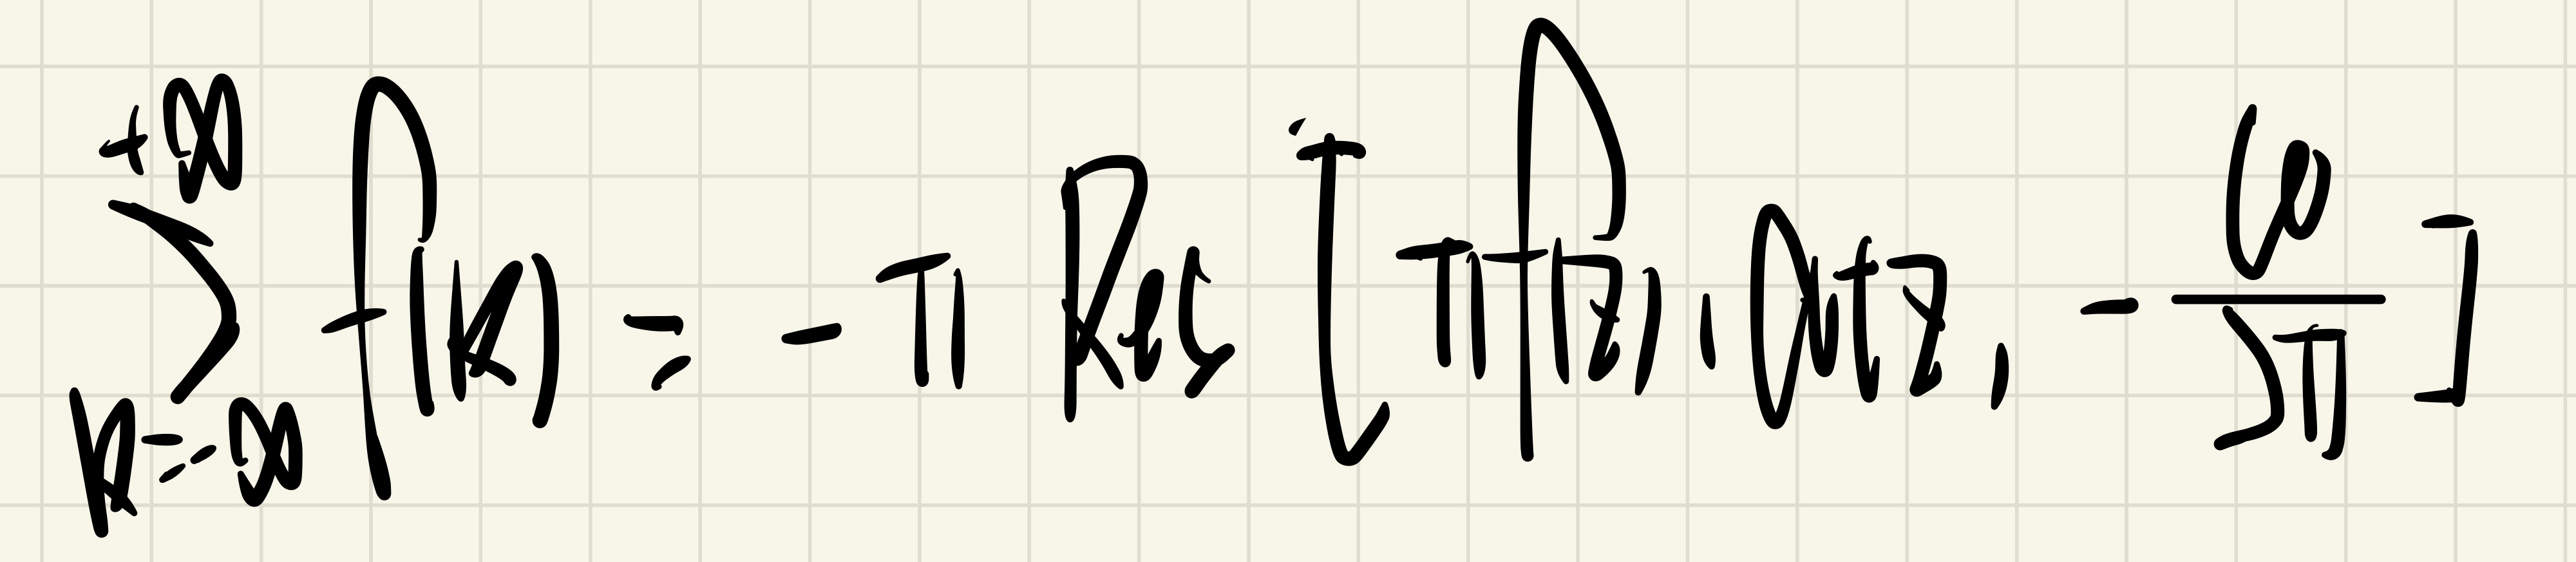 \sum_{k=-\infty}^{+\infty} f(k) = -\pi \operatorname{Res} [ \pi f(z), \cot z, -\frac{\omega}{5\pi} ]